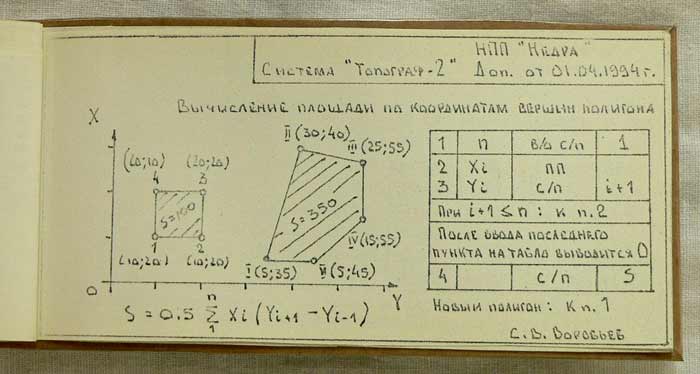 НПП "Недра"
Система "Топограф-2" Доп. от 01.04.1994г.
Вычисление площади по координатам вершин полигона
X
II (30;40)
III (25;55)
(20;10) (20;20)
4 3
S=100
S=350
1 2
(10;20) (10;20)
IV (15;55)
I (5;35) V (5;45)
0
Y
S = 0.5 n Σ 1 Xi (Yi+1 - Yi-1)
1 П В/О С/П 1
2 Xi ПП
3 Yi С/П i+1
При i+1≤n: к п.2
После ввода последнего
пункта на табло выводится 0
4 С/П S
Новый полигон: к п.1
С.В. Воробьев